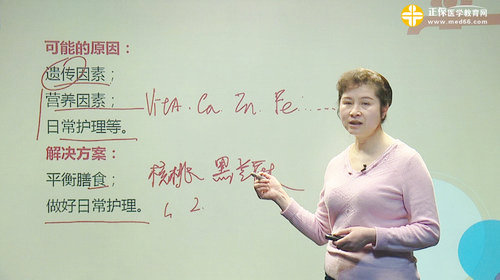 正保医学教育网
www.med66.com
可能的原因：
遗传因素；
营养因素； VitA. Ca Zn Fe ......
日常护理等。
解决方案：
平衡膳食； 核桃 黑芝麻
做好日常护理。 1. 2.